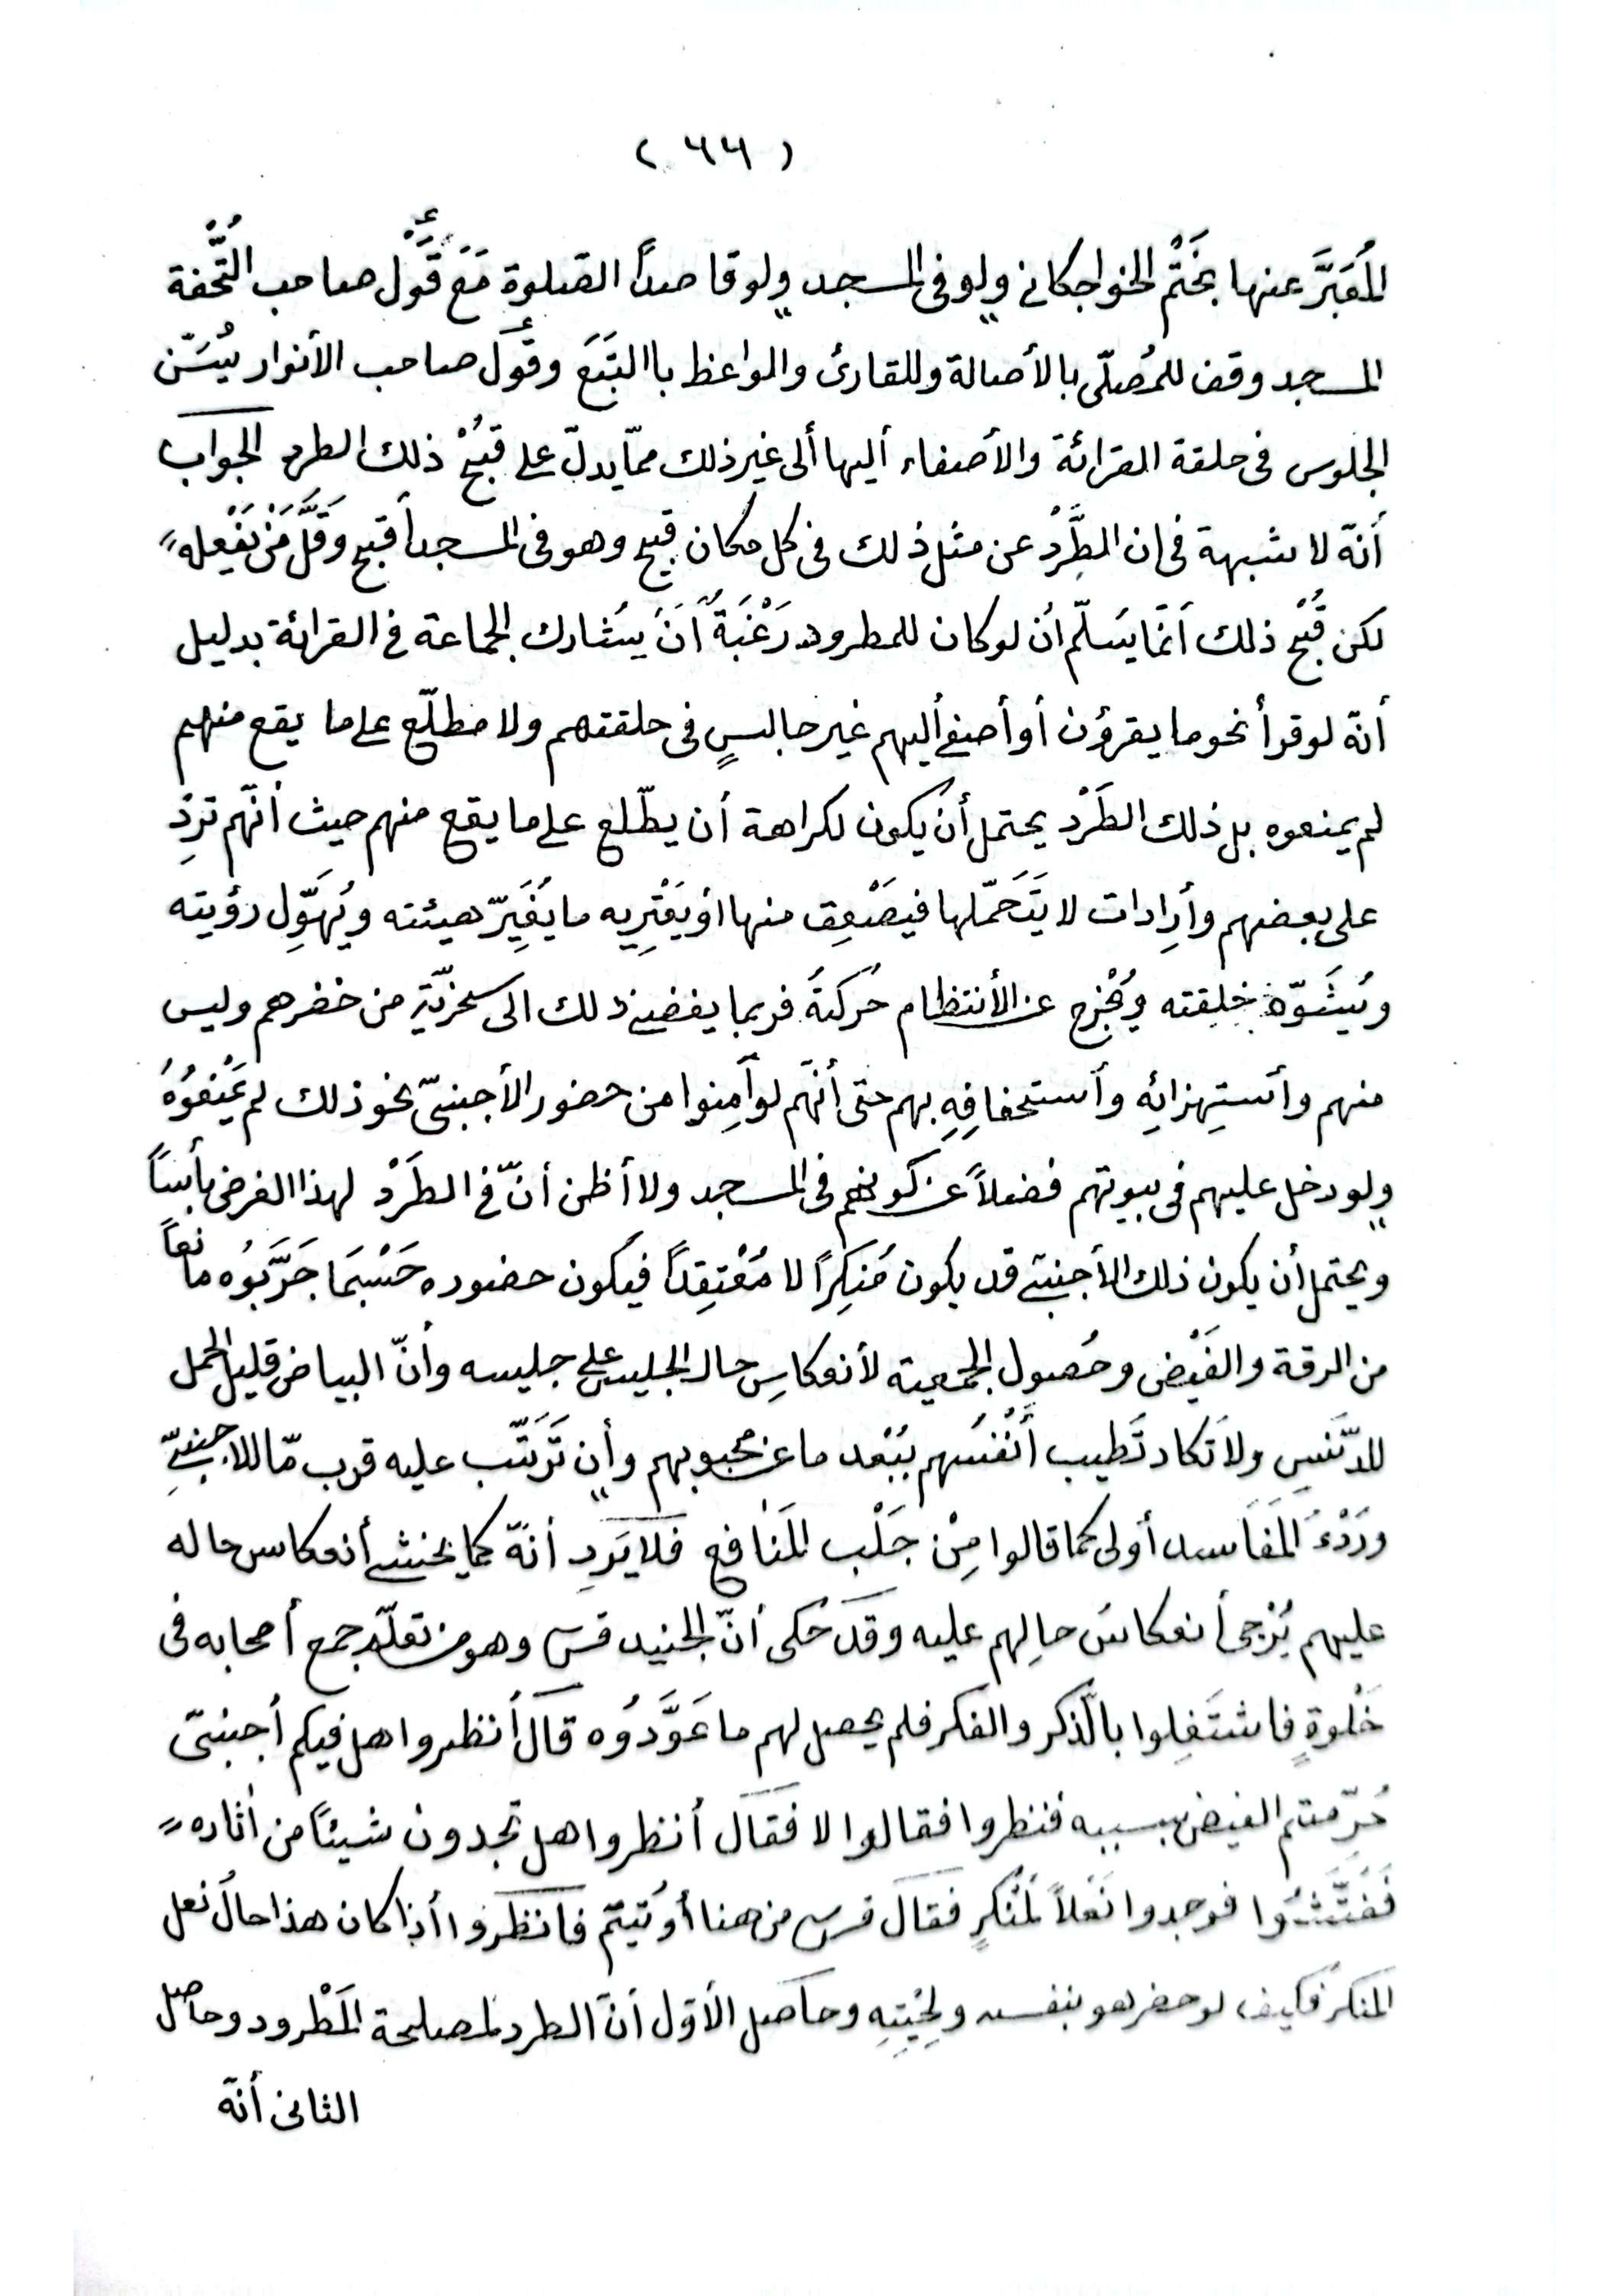 ( ٦٦ )
المُعَبَّرَ عنها بخَتْم الخواجكانى ولو فى المسجد ولو قاصداً الصلوة مَعَ قَوْل صاحب التُّحْفة
المسجد وقف للمُصلّى بالأصالة وللقارئ والواعظ باالتَبَعَ وقَولَ صاحب الأنوار يُسَنّ
الجلوس فى حلقة القرائة والأصغاء أليها ألى غير ذلك ممّا يدلّ على قبْحُ ذلك الطرد الجواب
أنّه لا شبهة فى ان الطَّرْدَ عن مثل ذلك فى كل مكان قبيح وهو فى المسجد أقبح وَقَلَّ مَنْ يَفْعله
لكن قُبْح ذلك أنّما يسَلّم أن لو كان للمطرود رَغْبَةٌ أنَ يشارك الجماعة فى القرائة بدليل
أنّه لو قرأ نحو ما يقرؤن أو أصغى أليهم غير جالسٍ فى حلقتهم ولا مطلّع على ما يقع منهم
لم يمنعوه بل ذلك الطَرْد يحتمل أن يكون لكراهة أن يطّلع على ما يقع منهم حيث أنّهم تَرِدُ
على بعضهم وأرِادات لا يَتَحَمّلها فيصَعِق منها اوْ يَعْتَرِيه ما يُغَيِّر هيئته ويُهَوِّل رؤيته
ويُشَوّه خِلِقته ويُخْرج عن الأنتظام حُركتهُ فربما يفضى ذلك الى سخريّةٍ من حضرهم وليس
منهم وأستِهزائِهِ وأستخفافِهِ بهم حتى أنّهم لو أَمِنوا من حضور الأجنبىّ نحو ذلك لم يَمْنعُوُهُ
ولو دخل عليهم فى بيوتهم فضلاً عن كونهم فى المسجد ولا أظن أنّ فى الطَرْد لهذا الغرض بأساً
ويحتمل أن يكون ذلك الأجنبى قد يكون مُنكِرًا لا مُعْتِقِداً فيكون حضوره حَسْبَمَا جَرَّبُوه مانعاً
من الرقة والفَيْض وحُصول الجمعية لأنعكاسِ حال الجليس على جليسه وأنّ البياض قليل الحمل
للدّنَسِ ولا تكاد تَطيب أَنْفُسُهم ببُعْد ما عن محبوبهم وأن تَرَتّب عليه قرب مّا للاجنبىِّ
ودَرْءُ المفَاسد أولى كما قالوا مِنْ جَلْب المَنَافع فلا يَرَدِ أنّه كما يخشى أنعكاس حاله
عليهم يُرْجى أنعكاسُ حالِهم عليه وقَد حُكى أنّ الجنيد قس وهو من نعلّه جمع أصحابه فى
خَلْوةٍ فاشتَغلوا بالّذكر والفكر فلم يحصل لهم ما عَوَّدوُه قال أنظروا هل فيكم أجنبىّ
حُرِّمتم الفيض بسببه فنظروا فقالوا لا فقال أنظروا هل تجدون شيئاً من أثاره
فَفَتَّشُوا فوجدوا نَعْلاً لمُنكرٍ فقالَ قس من هنا أُوتُيتم فانظروا أذا كان هذا حالُ نعل
المنكر فكيف لو حضر هو بنفسه ولِحْيَتِهِ وحاصل الأوّل أنّ الطرد لمصلحة المَطْرود وحاصل
الثانى أنّه